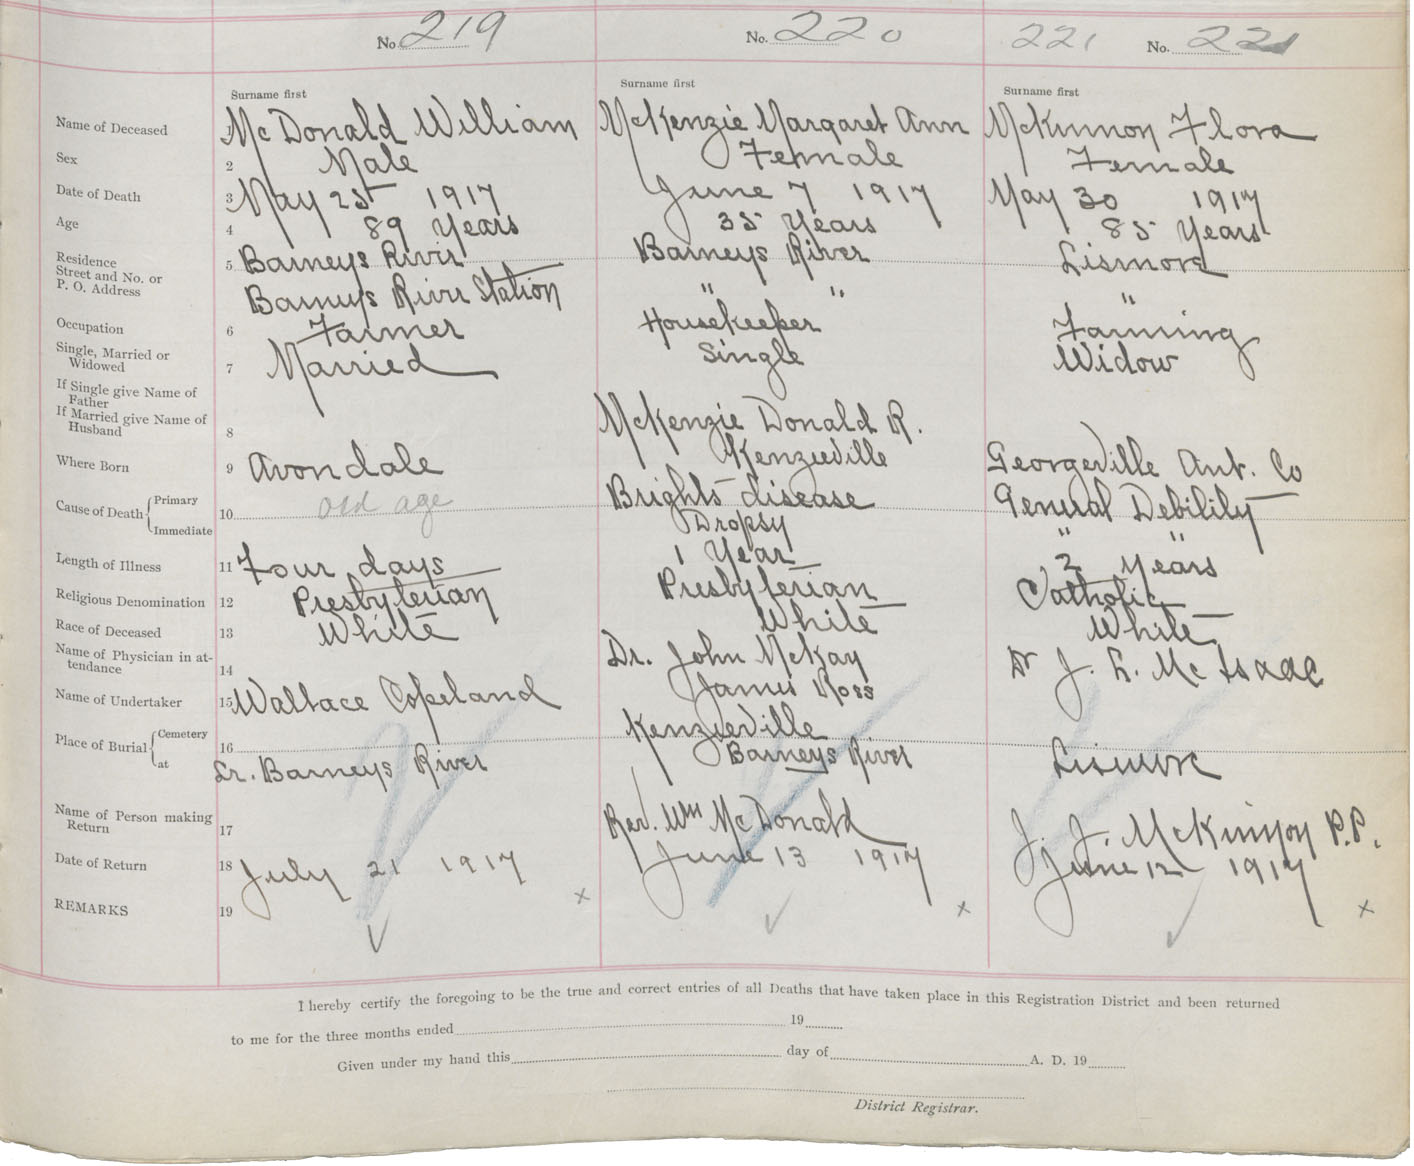 No. 219
No. 220
221 No. 221
Surname first
Surname first
Surname first
Name of Deceased 1 McDonald William McKenzie Margaret Ann McKinnon Flora
Sex 2 Male Female Female
Date of Death 3 May 25 1917 June 7 1917 May 30 1917
Age 4 89 Years 35 Years 85 Years
Residence 5 Barneys River Barneys River Lismore
Street and No. or
P. O. Address Barneys River Station " " "
Occupation 6 Farmer Housekeeper Farming
Single, Married or
Widowed 7 Married Single Widow
If Single give Name of
Father
If Married give Name of
Husband 8 McKenzie Donald R.
Where Born 9 Avondale Kenzieville Georgeville Ant. Co
Cause of Death { Primary Brights disease General Debility
10 old age
Immediate Dropsy " "
Length of Illness 11 Four days 1 Year 2 Years
Religious Denomination 12 Presbyterian Presbyterian Catholic
Race of Deceased 13 White White White
Name of Physician in at-
tendance 14 Dr. John McKay Dr J. L. McIsaac
Name of Undertaker 15 Wallace Copeland James Ross
Place of Burial { Cemetery Kenzieville
16
at Lr. Barneys River Barneys River Lismore
Name of Person making
Return 17 Rev. Wm McDonald J. J. McKinnon P.P.
Date of Return 18 July 21 1917 June 13 1917 June 12 1917
REMARKS 19 x x x
I hereby certify the foregoing to be the true and correct entries of all Deaths that have taken place in this Registration District and been returned
to me for the three months ended 19
Given under my hand this day of A. D. 19
District Registrar.